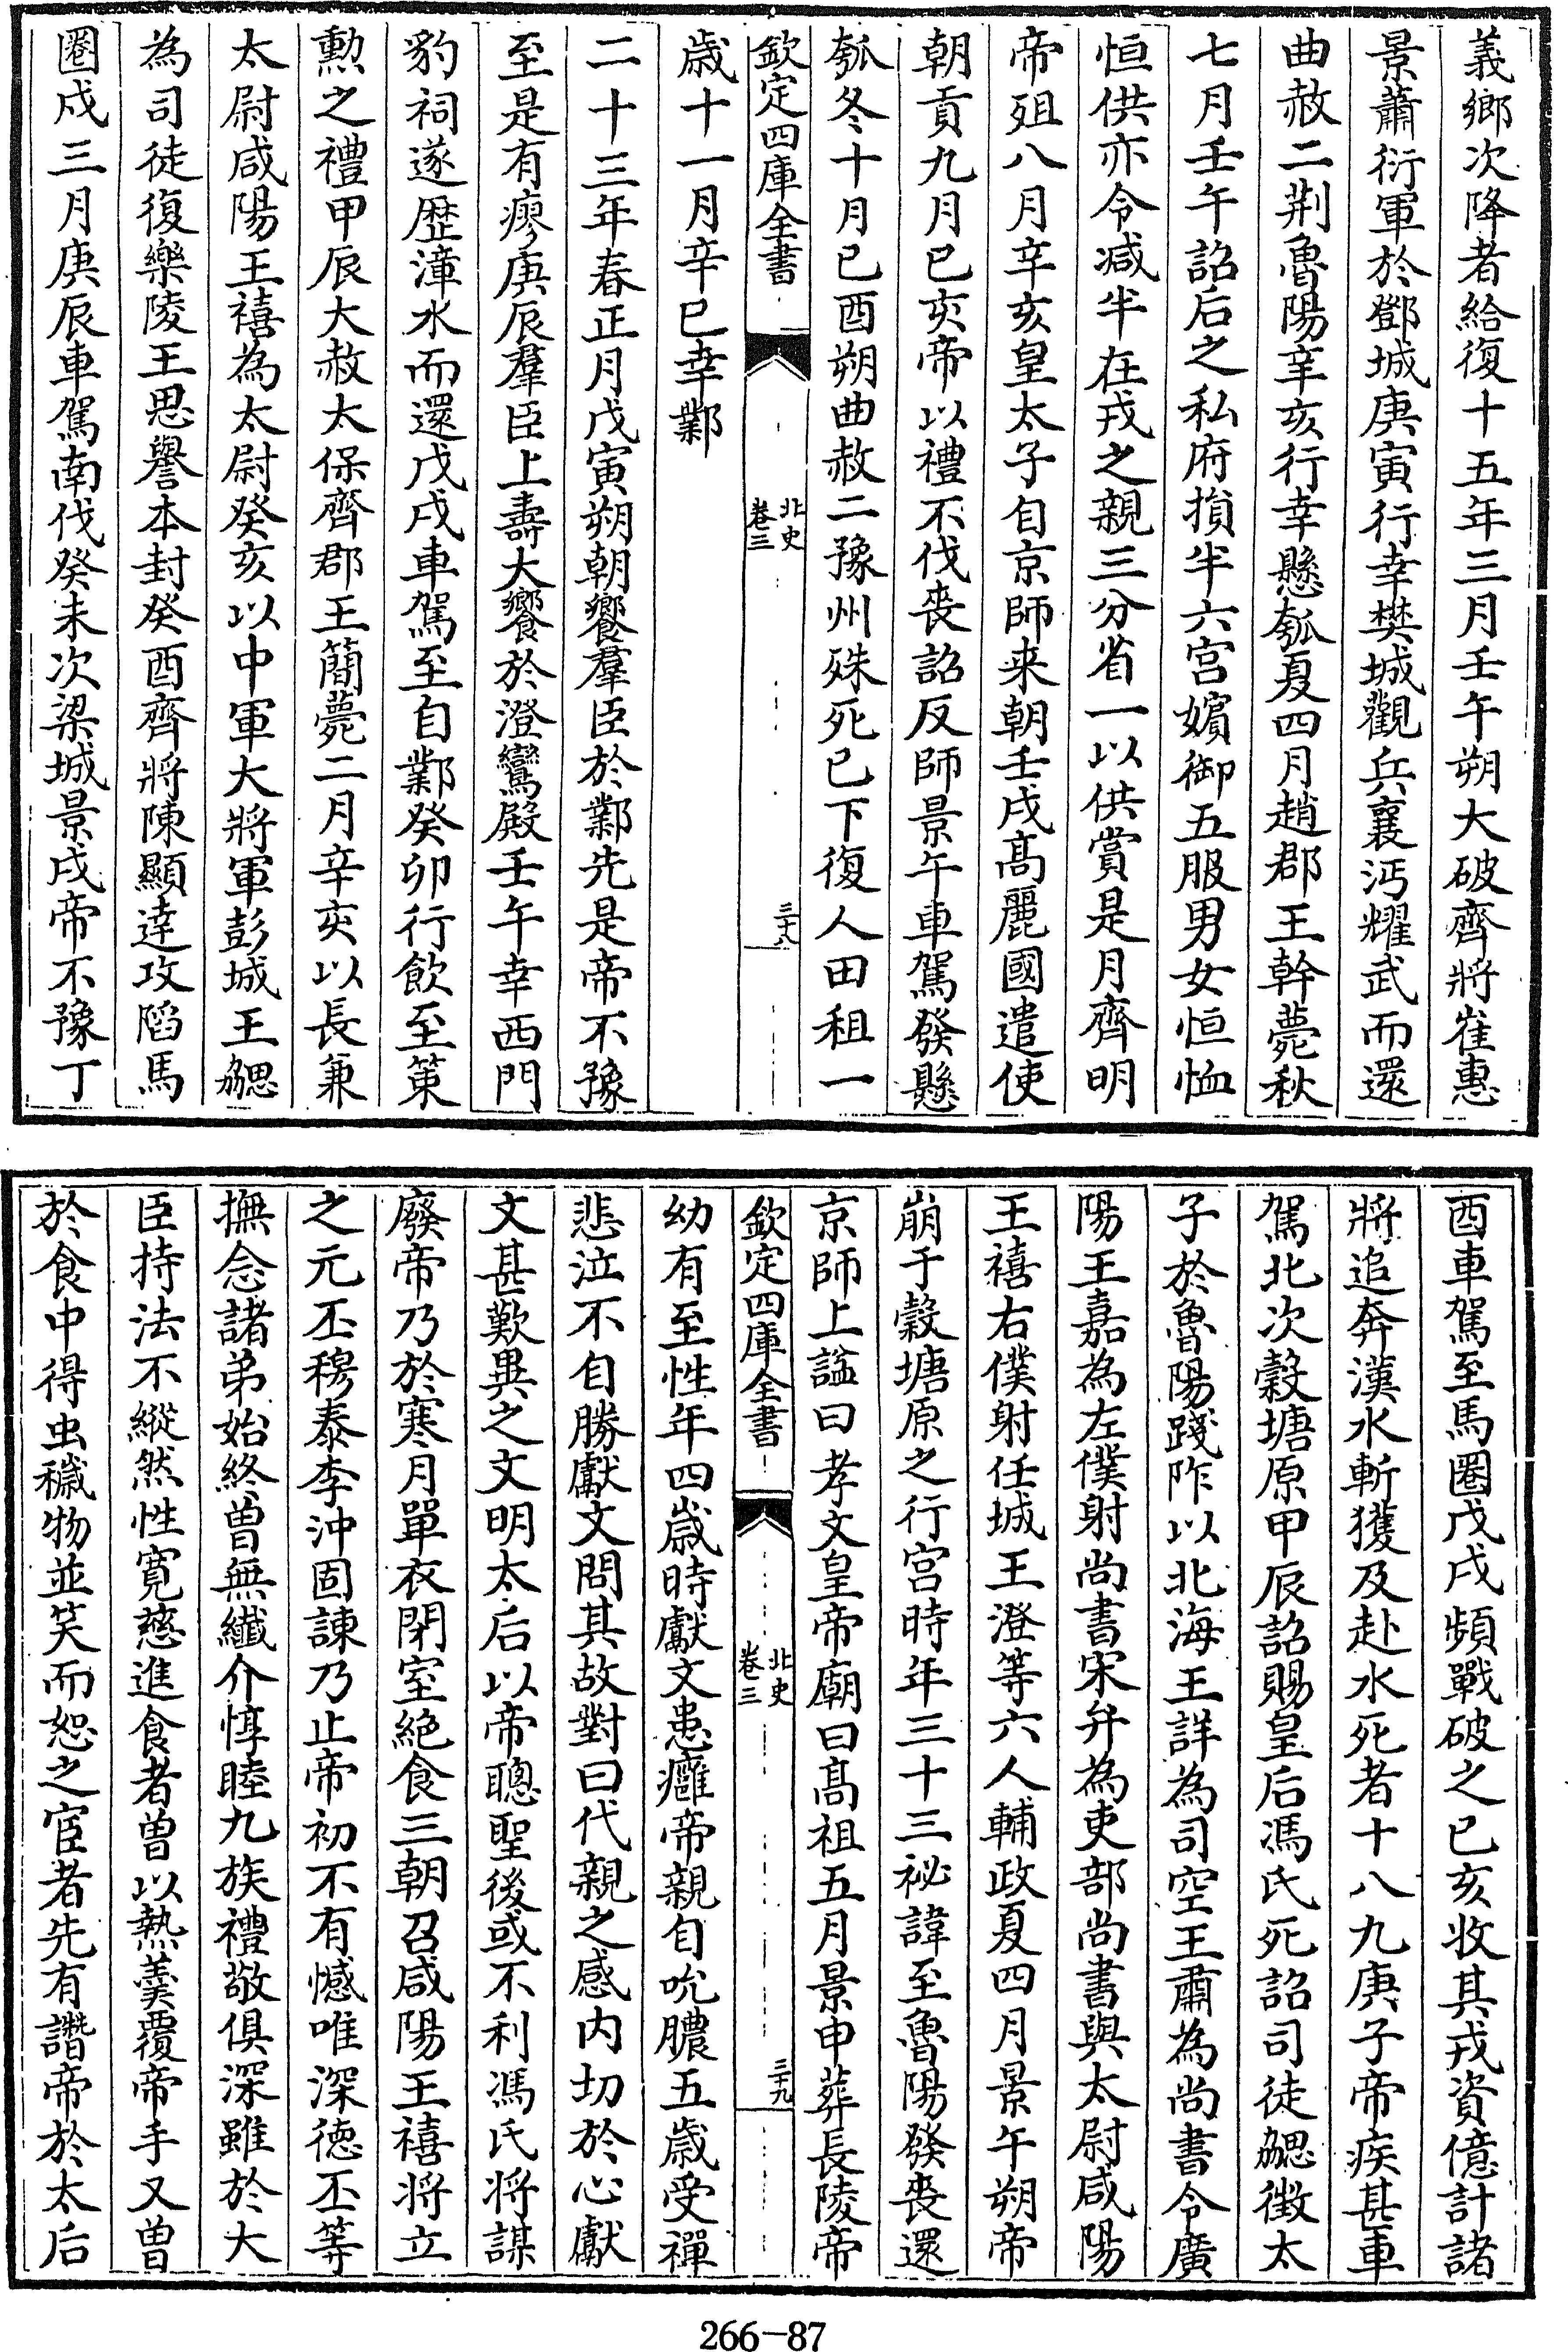 義鄉次降者給復十五年三月壬午朔大破齊將崔惠
景蕭衍軍於鄧城庚寅行幸樊城觀兵襄沔耀武而還
曲赦二荆魯陽辛亥行幸懸瓠夏四月趙郡王幹薨秋
七月壬午詔后之私府損半六宫嬪御五服男女恒恤
恒供亦令减半在戎之親三分省一以供賞是月齊明
帝殂八月辛亥皇太子自京師来朝壬戌髙麗國遣使
朝貢九月已亥帝以禮不伐喪詔反師景午車駕發懸
瓠冬十月已酉朔曲赦二豫州殊死已下復人田租一
欽定四庫全書
北史
卷三
三十八
歲十一月辛巳幸鄴
二十三年春正月戊寅朔朝饗羣臣於鄴先是帝不豫
至是有瘳庚辰羣臣上壽大饗於澄鸞殿壬午幸西門
豹祠遂歴漳水而還戊戌車駕至自鄴癸卯行飲至策
勲之禮甲辰大赦太保齊郡王簡薨二月辛亥以長兼
太尉咸陽王禧為太尉癸亥以中軍大將軍彭城王勰
為司徒復樂陵王思譽本封癸酉齊將陳顯達攻陷馬
圈戍三月庚辰車駕南伐癸未次梁城景戌帝不豫丁
酉車駕至馬圈戊戌頻戰破之已亥收其戎資億計諸
將追奔漢水斬獲及赴水死者十八九庚子帝疾甚車
駕北次穀塘原甲辰詔賜皇后馮氏死詔司徒勰徵太
子於魯陽踐阼以北海王詳為司空王肅為尚書令廣
陽王嘉為左僕射尚書宋弁為吏部尚書與太尉咸陽
王禧右僕射任城王澄等六人輔政夏四月景午朔帝
崩于穀塘原之行宫時年三十三祕諱至魯陽發喪還
京師上諡曰孝文皇帝廟曰髙祖五月景申葬長陵帝
欽定四庫全書
北史
卷三
三十九
幼有至性年四歲時獻文患癰帝親自吮膿五歲受禪
悲泣不自勝獻文問其故對曰代親之感内切於心獻
文甚歎異之文明太后以帝聰聖後或不利馮氏將謀
廢帝乃於寒月單衣閉室絶食三朝召咸陽王禧將立
之元丕穆泰李沖固諫乃止帝初不有憾唯深德丕等
撫念諸弟始終曾無纖介惇睦九族禮敬俱深雖於大
臣持法不縱然性寛慈進食者曾以熱羹覆帝手又曾
於食中得虫穢物並笑而恕之宦者先有譖帝於太后
266-87